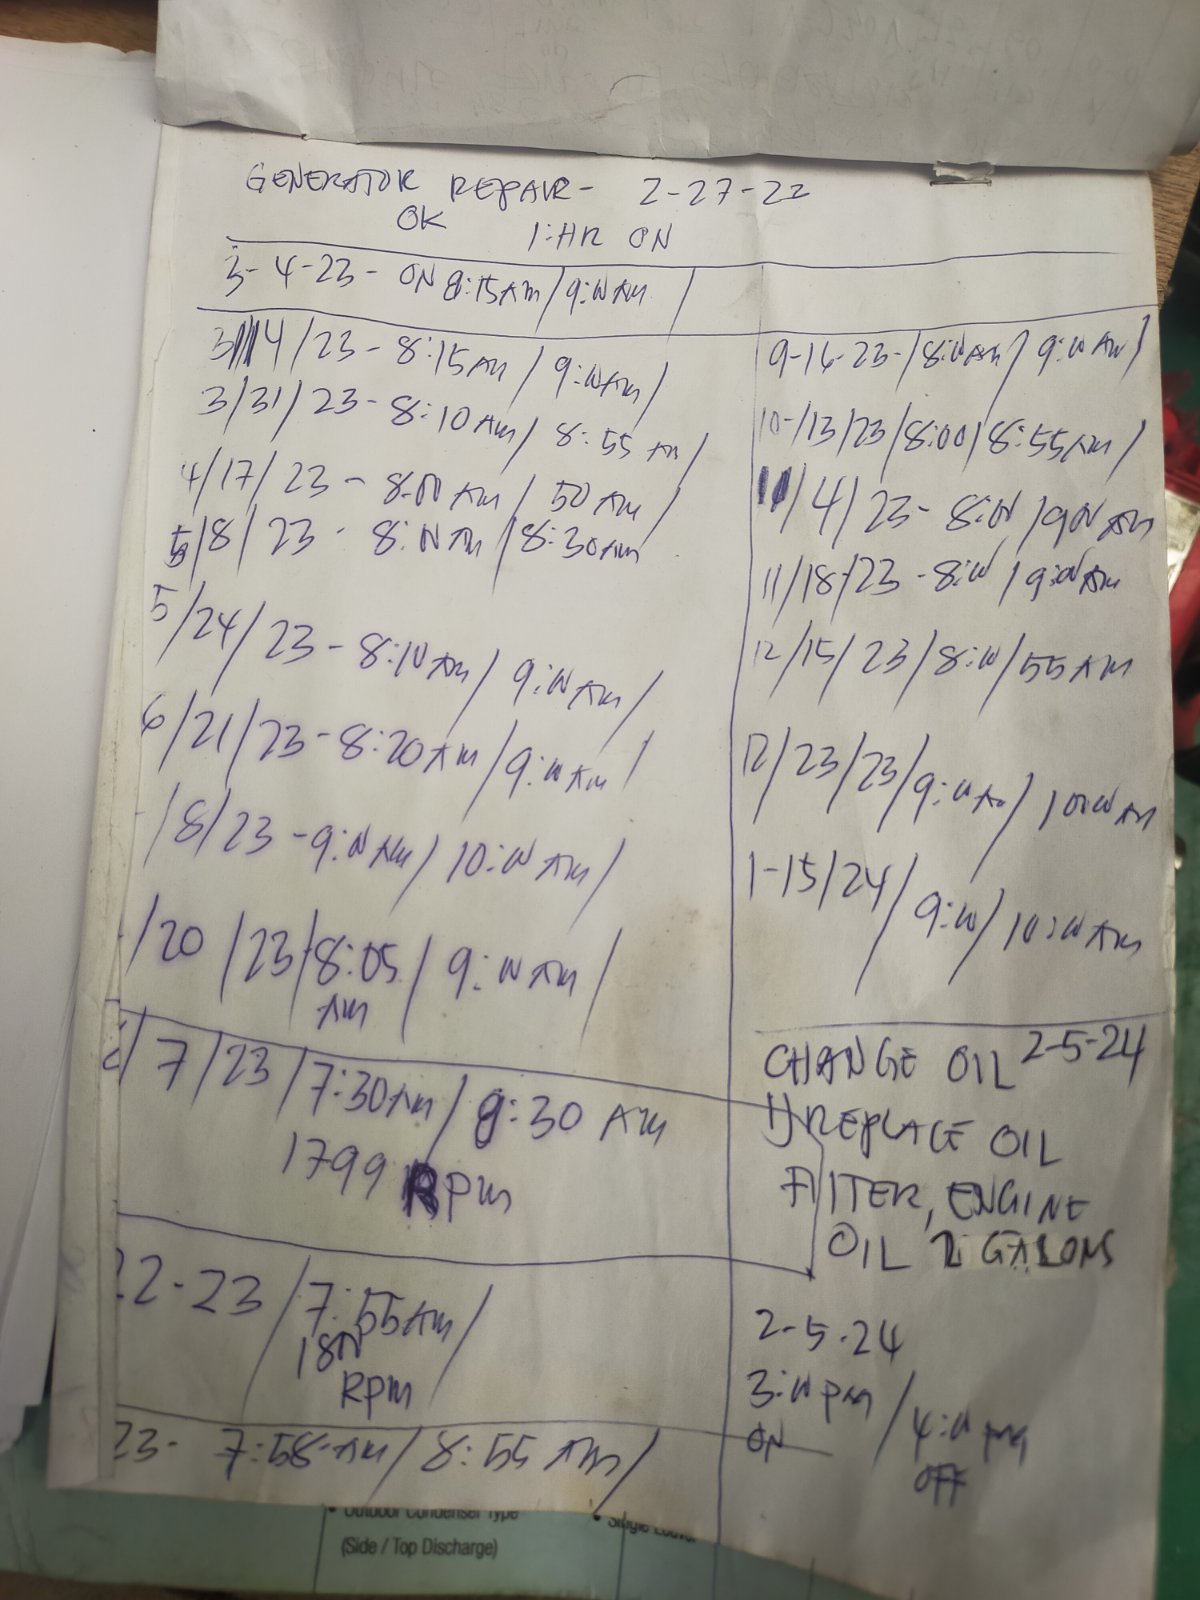 GENERATOR REPAIR - 2-27-23
OK 1:HR ON
3-4-23- ON 8:15AM/9:00AM /
3/14/23-8:15AM/9:00AM/
3/31/23-8:10AM/8:55AM/
4/17/23-8:00AM/50AM/
5/8/23-8:00AM/8:30AM
5/24/23-8:10AM/9:00AM/
6/21/23-8:20AM/9:00AM/
/8/23-9:00AM/10:00AM/
/20/23/8:05/9:00AM/
AM
/7/23/7:30AM/8:30AM
1799 RPM
22-23/7:55AM/
1800
RPM
23- 7:58-AM/8:55AM/
9-16-23-/8:00AM/9:00AM/
10-/13/23/8:00/8:55AM/
11/4/23-8:00/9:00AM
11/18/23-8:00/9:00AM
12/15/23/8:00/55AM
12/23/23/9:00AM/10:00AM
1-15/24/9:00/10:00AM
CHANGE OIL 2-5-24
1) REPLACE OIL
FILTER, ENGINE
OIL 2 GALONS
2-5-24
3:00PM/4:00PM
ON OFF
• Outdoor Condenser Type
(Side / Top Discharge)
• Single